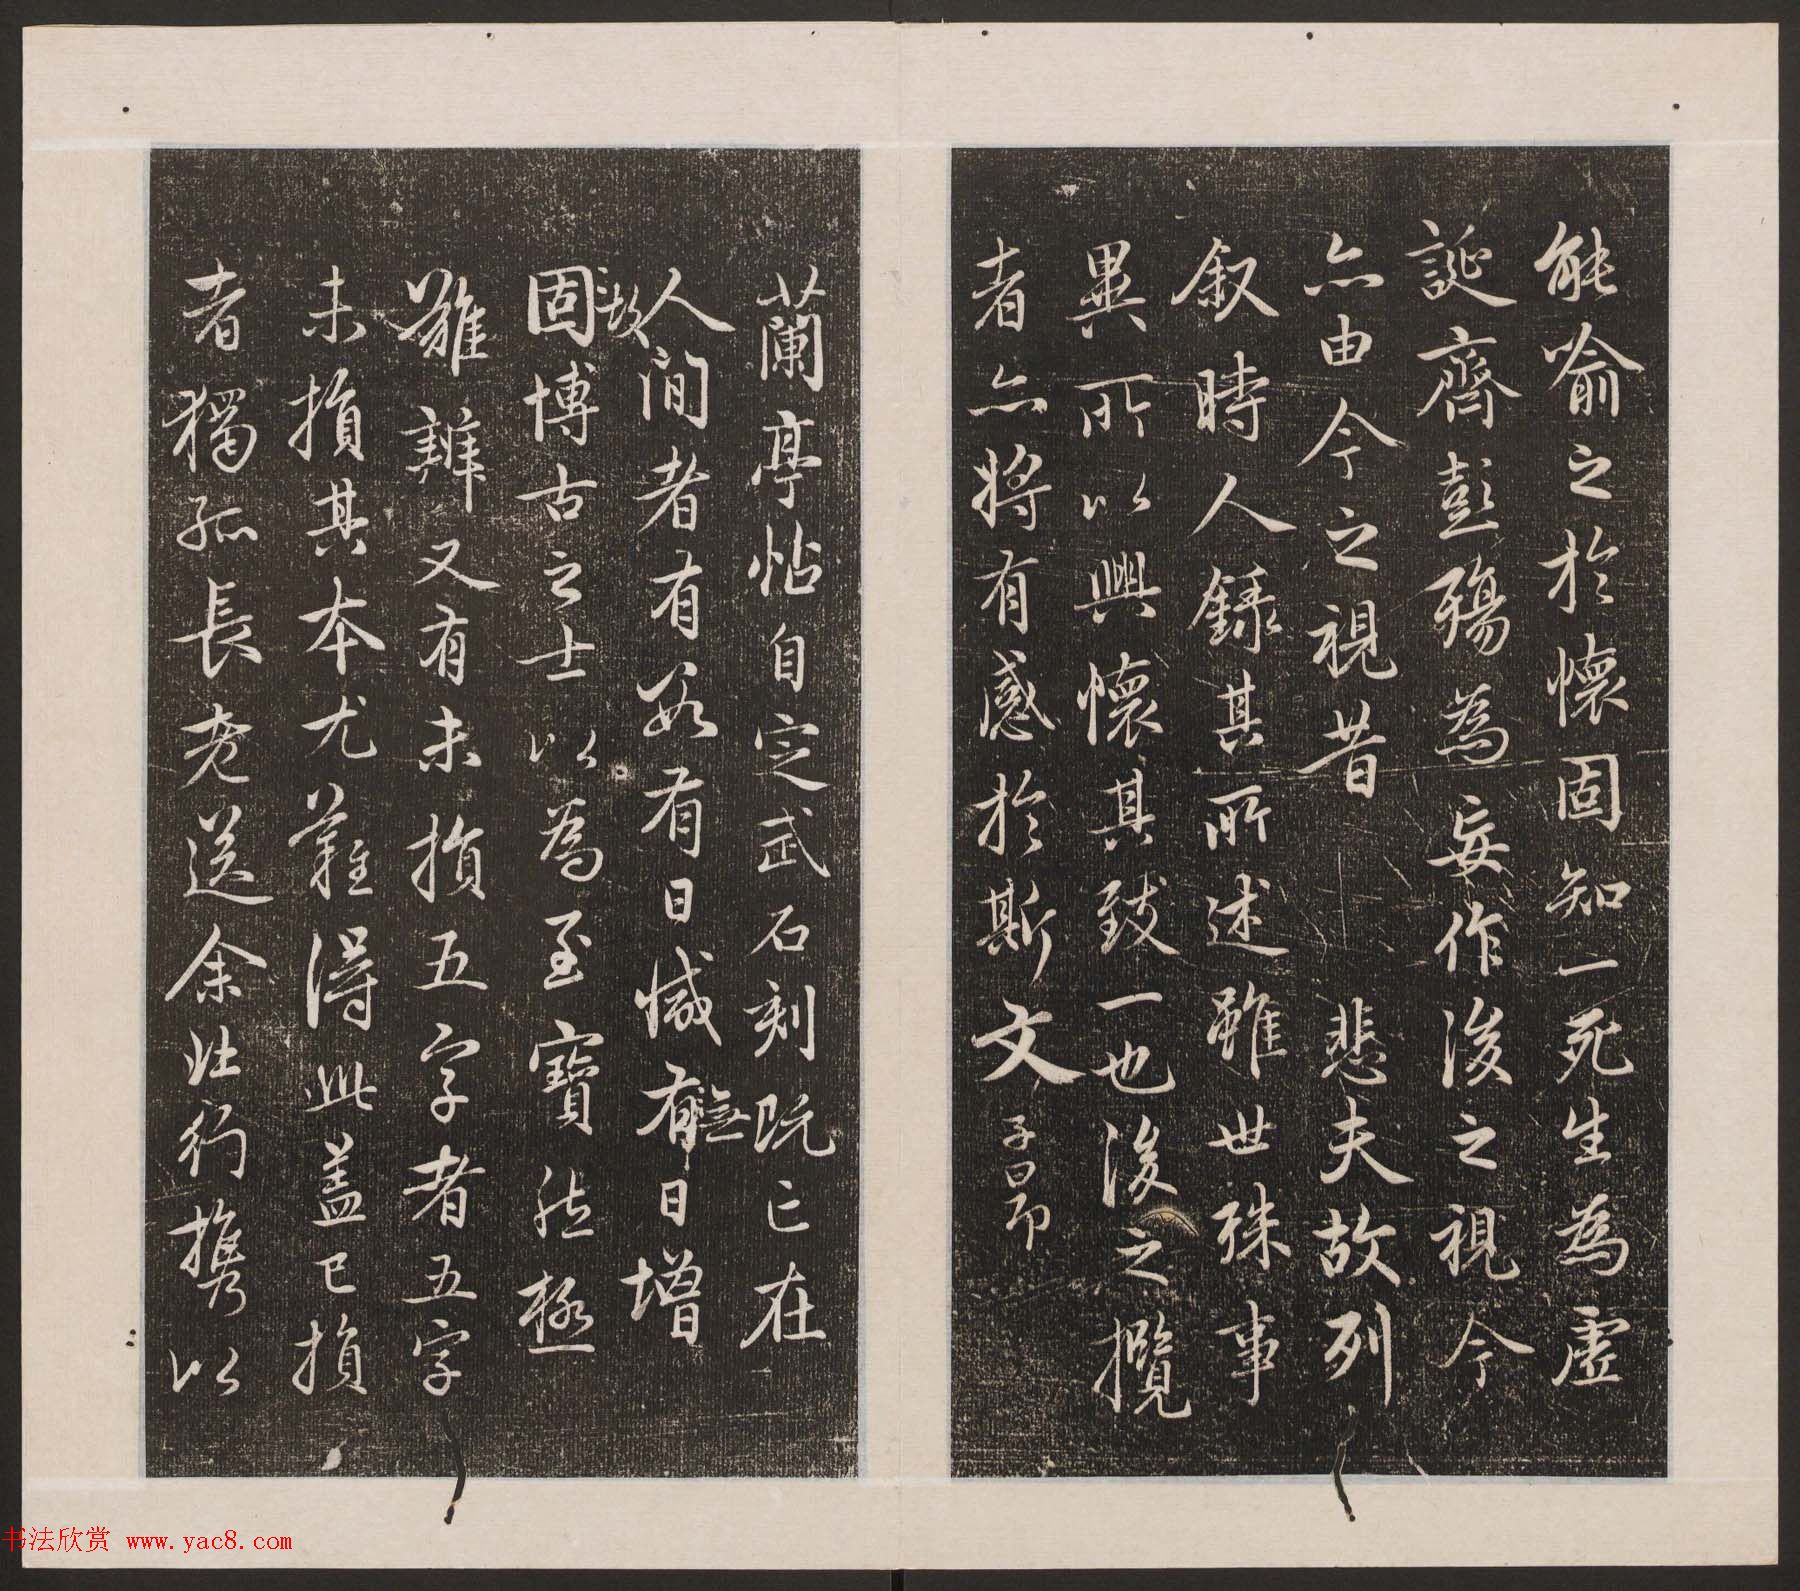 能喻之於懷固知一死生為虛
誕齊彭殤為妄作後之視今
亦由今之視昔 悲夫故列
叙時人錄其所述雖世殊事
異所以興懷其致一也後之攬
者亦將有感於斯文 子昂
蘭亭帖自定武石刻既亡在
人間者有數有日減有無日增
故
固博古之士以為至寶然極
難辨又有未損五字者五字
未損其本尤難得此蓋已損
者獨孤長老送余北行攜以
书法欣赏 www.yac8.com